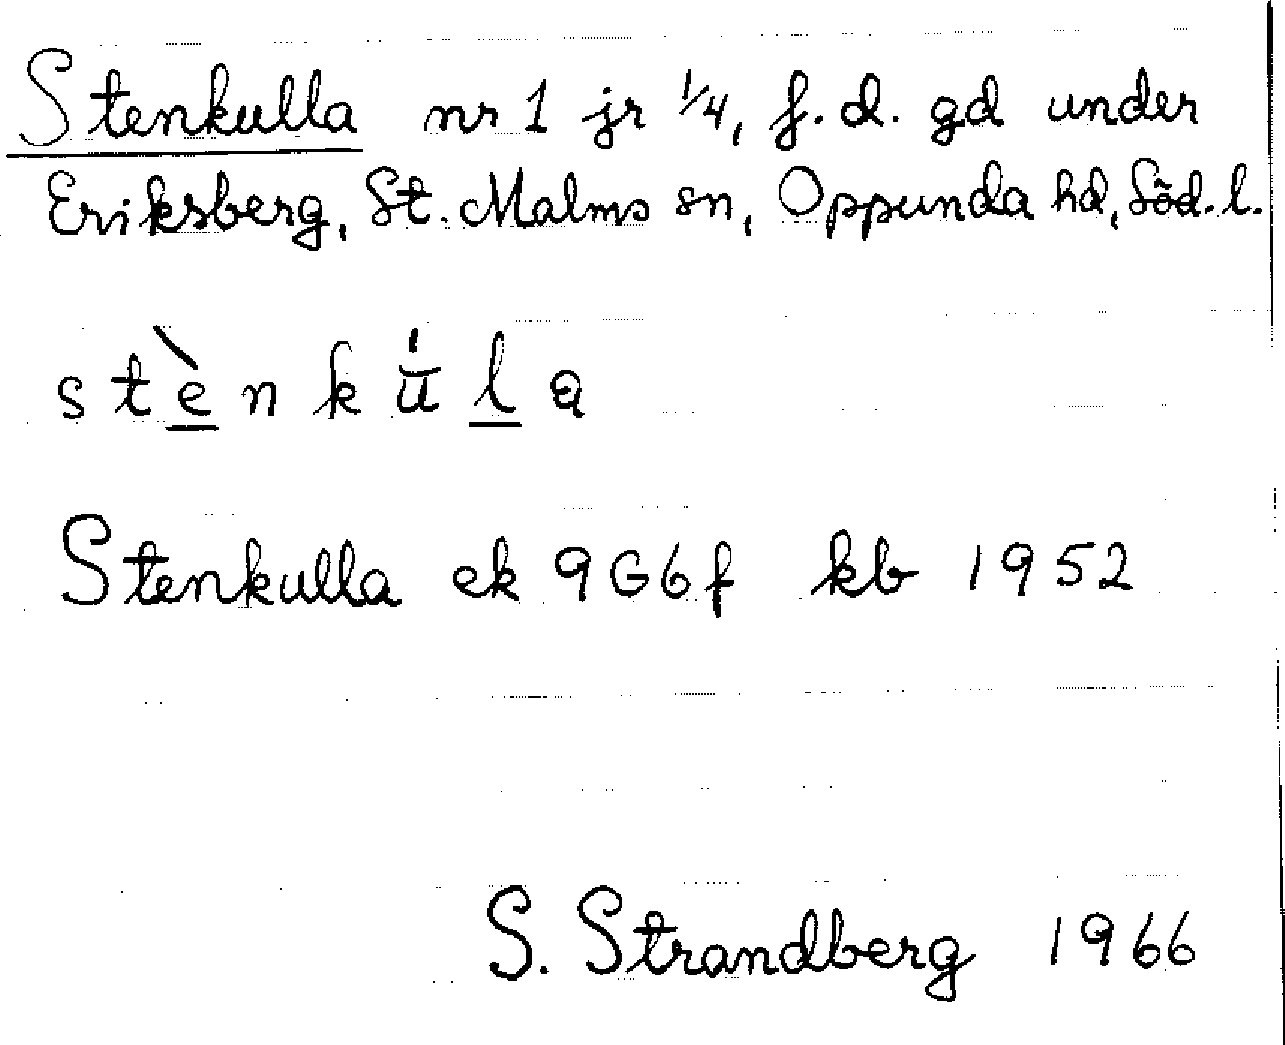 Stenkulla nr 1 jr 1/4, f. d. gd under
Eriksberg, St. Malms sn, Oppunda hd, Söd. l.
stènkū́la
Stenkulla ek 9G6f kb 1952
S. Strandberg 1966